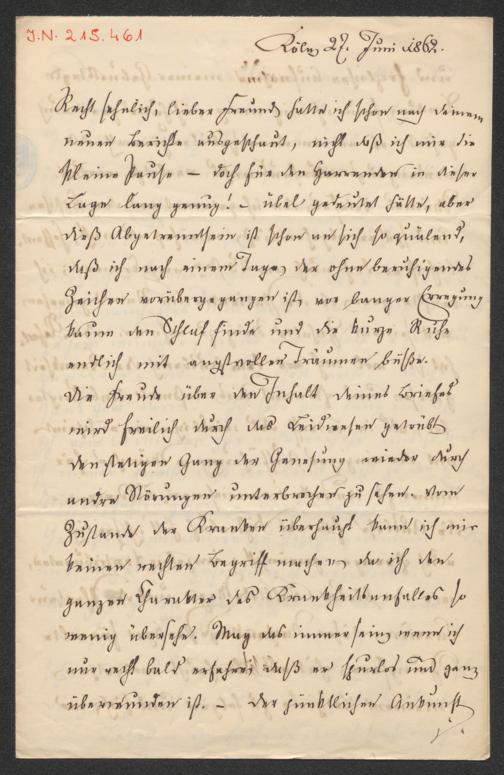 I.N. 215.461
Köln 27. Juni 1862.
Recht sehnlich, lieber Freund, hatte ich schon nach deinem
neuen Berichte ausgeschaut, nicht daß ich mir die
kleine Pause – doch für den Harrenden in dieser
Lage lang genug! – übel gedeutet hätte, aber
dieß Abgetrenntsein ist schon an sich so quälend,
daß ich nach einem Tage, der ohne beruhigendes
Zeichen vorübergegangen ist, vor banger Erregung
kaum den Schlaf finde und die kurze Ruhe
endlich mit angstvollen Träumen büße.
Die Freude über den Inhalt deines Briefes
wird freilich durch das Leidwesen getrübt
den stetigen Gang der Genesung wieder durch
andre Störungen unterbrochen zu sehen. Vom
Zustande der Kranken überhaupt kann ich mir
keinen rechten Begriff machen, da ich den
ganzen Charakter des Krankheitsanfalles so
wenig übersehe. Mag das immer sein, wenn ich
nur recht bald erfahre, daß er spurlos und ganz
überwunden ist. – Der pünktlichen Ankunft